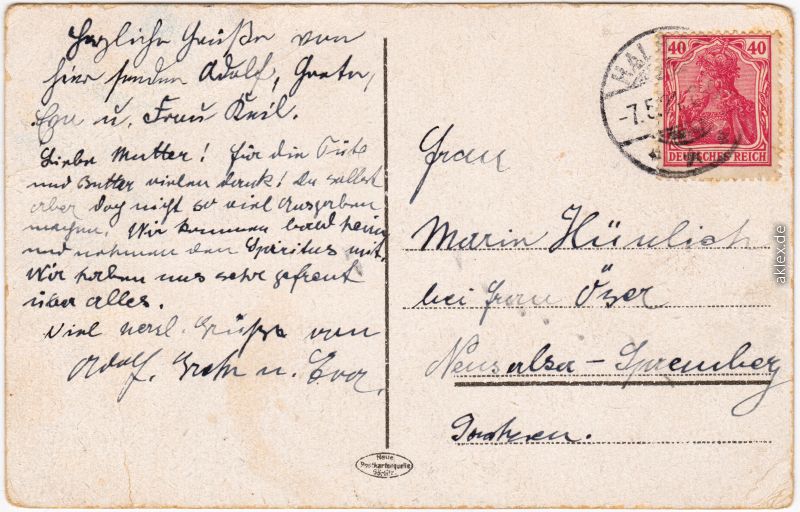 Herzliche Grüße von
hier senden Adolf, Grete,
Eva u. Frau Keil.
Liebe Mutter! Für die Tüte
und Butter vielen Dank! Du sollst
aber doch nicht so viel Ausgaben
machen. Wir kommen bald heim
und nehmen den Spiritus mit.
Wir haben uns sehr gefreut
über alles.
Viel herzl. Grüße von
Adolf, Grete u. Eva.
HAL
-7.5.
40 40
DEUTSCHES REICH
Frau
Marin Hünlich
bei Frau Öser
Neusalza-Spremberg
Sachsen.
Neue
Postkartenquelle
Görlitz
aklex.de